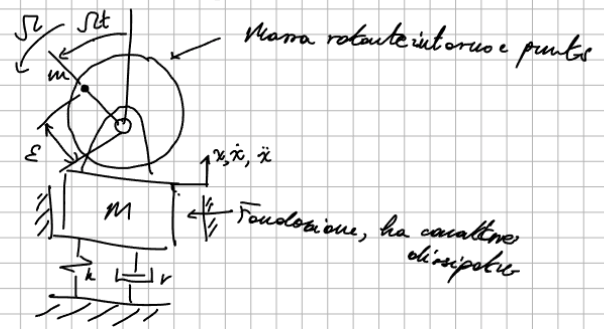 Ω Ωt
Massa rotante intorno a punto
m
ε
x, ẋ, ẍ
M
Fondazione, ha carattere
dissipativo
k
r